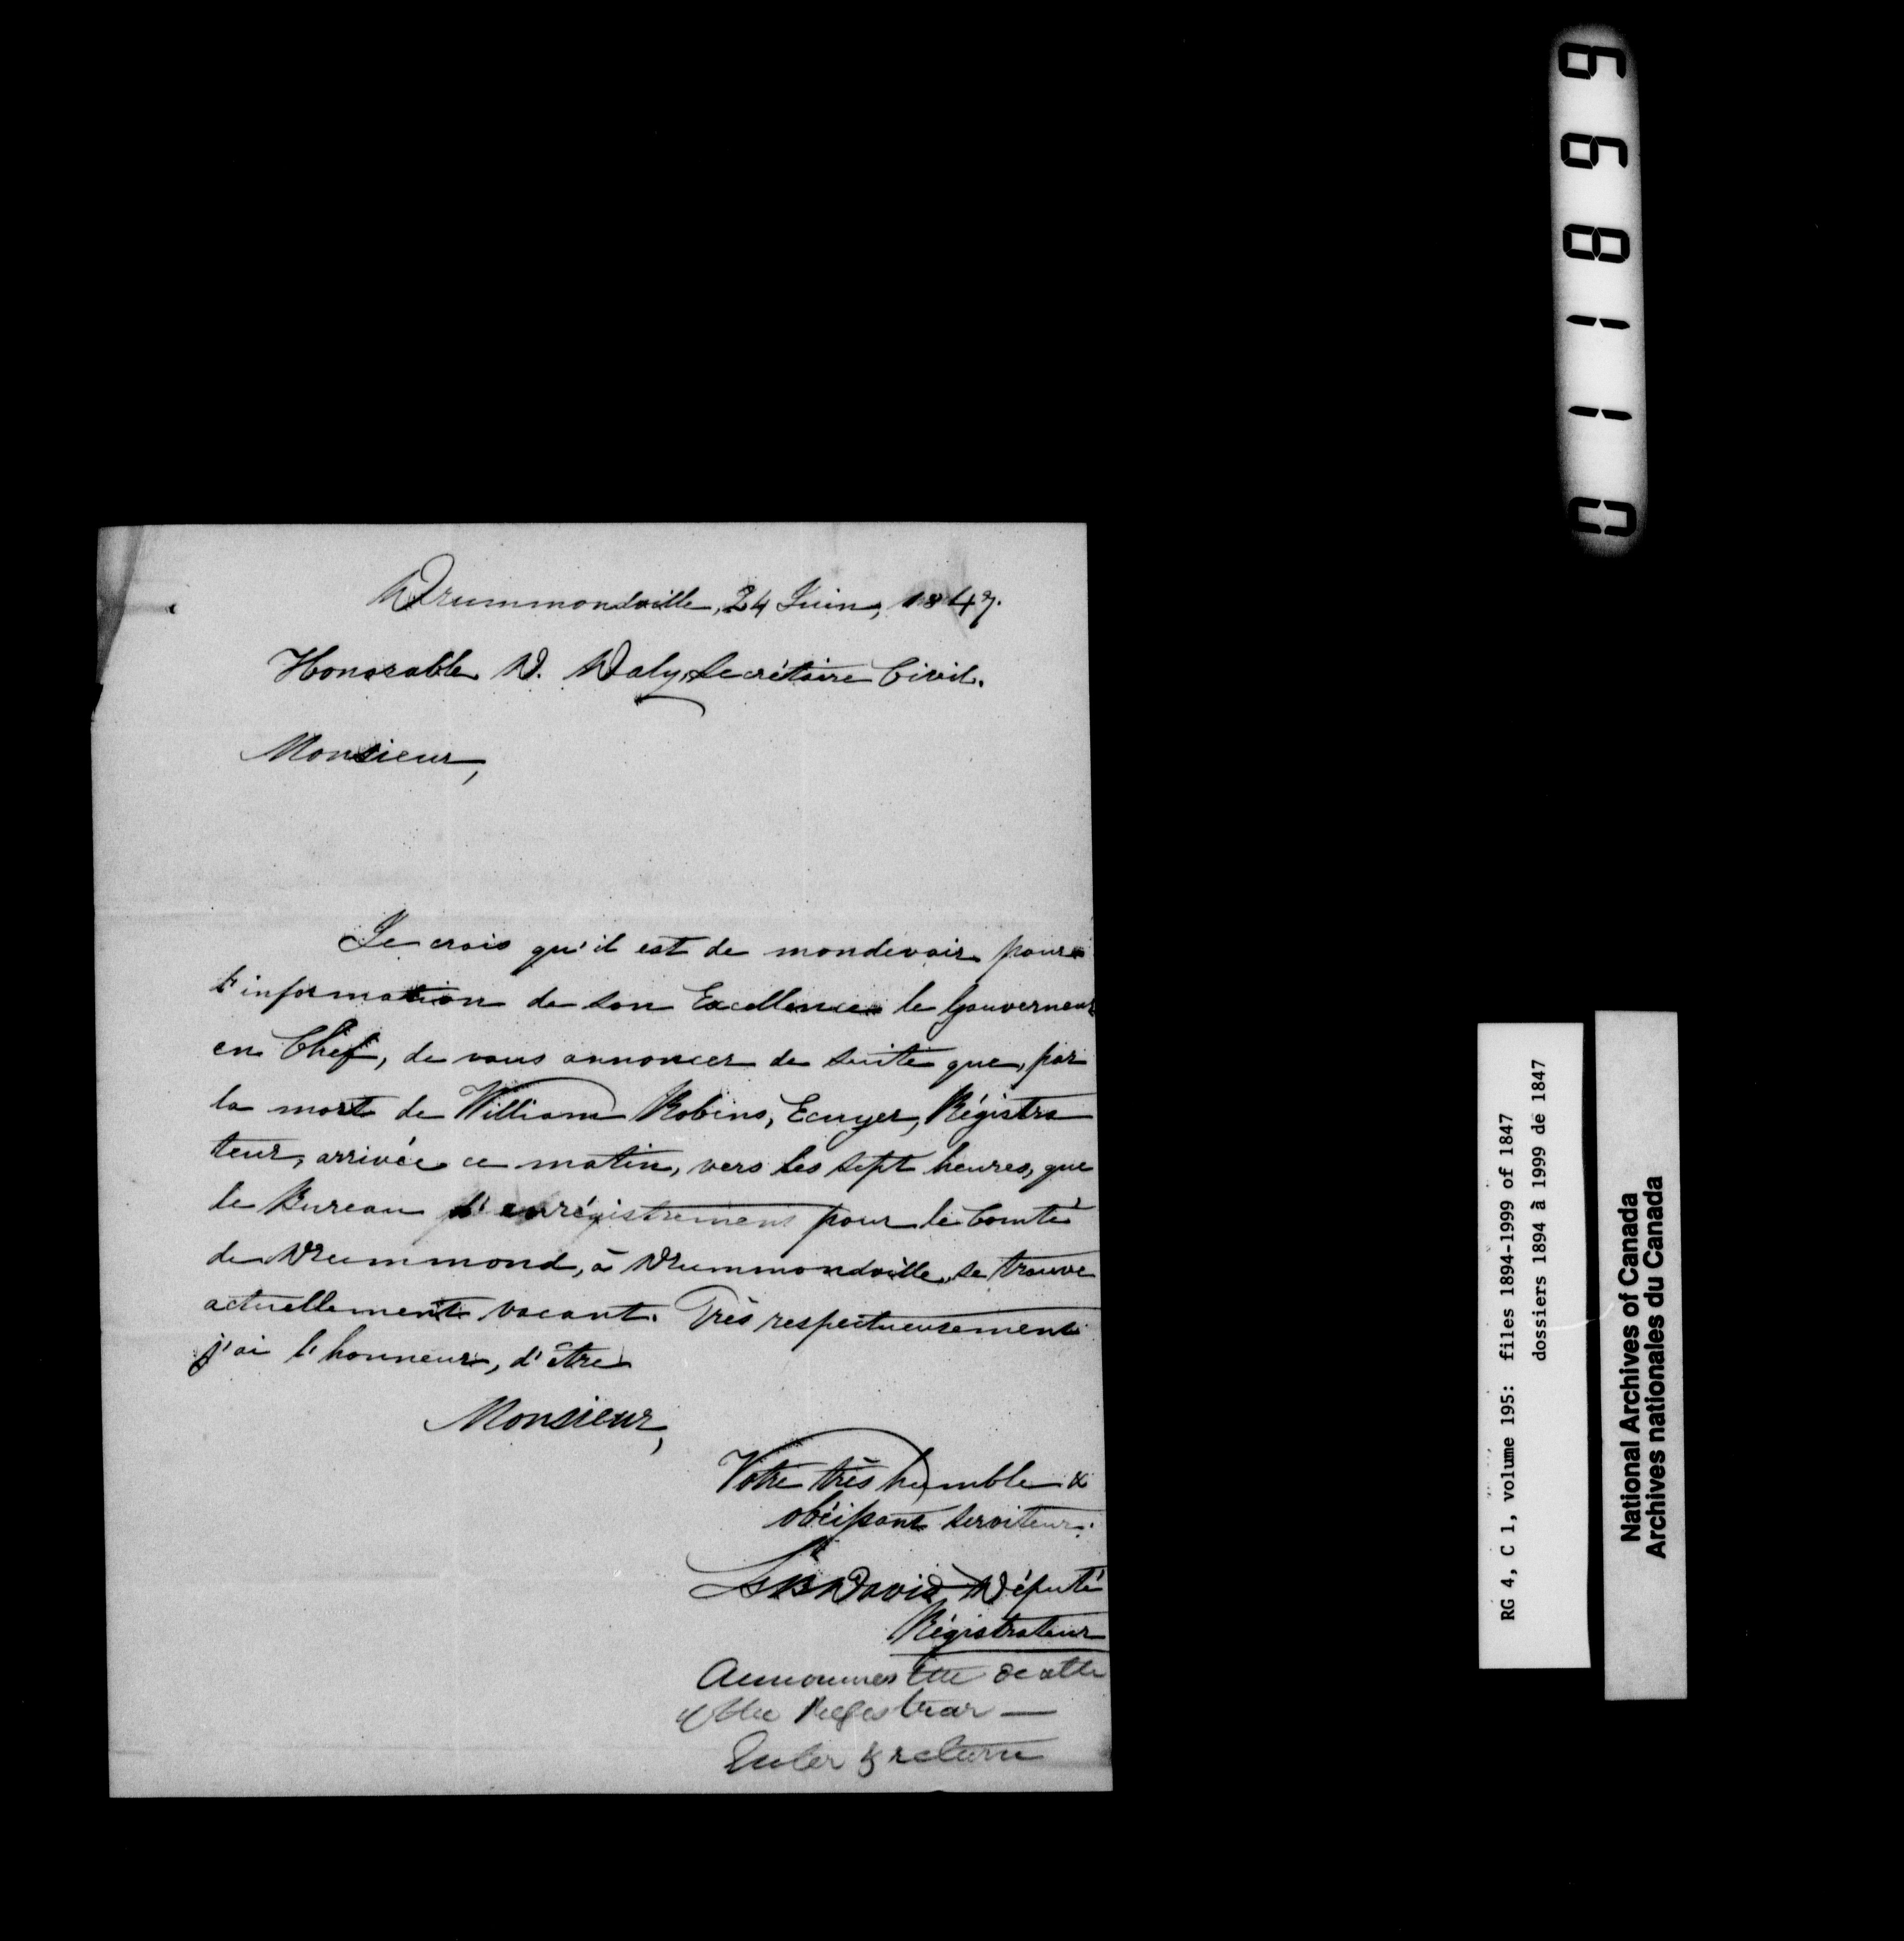 Drummondville, 24 Juin, 1847.
Honorable D. Daly, Secrétaire Civil.
Monsieur,
Je crois qu'il est de mon devoir pour
l'information de son Excellence le Gouverneur
en Chef, de vous annoncer de suite que, par
la mort de William Robins, Ecuyer, Régistra
teur, arrivée ce matin, vers les sept heures, que
le Bureau d'enrégistrement pour le Comté
de Drummond, à Drummondville, se trouve
actuellement vacant. Très respectueusement
j'ai l'honneur, d'être
Monsieur,
Votre très humble &
obéissant serviteur.
David Député
Régistrateur
Announces the death
of the Registrar —
Enter & return
RG 4, C 1, volume 195: files 1894-1999 of 1847
dossiers 1894 à 1999 de 1847
National Archives of Canada
Archives nationales du Canada